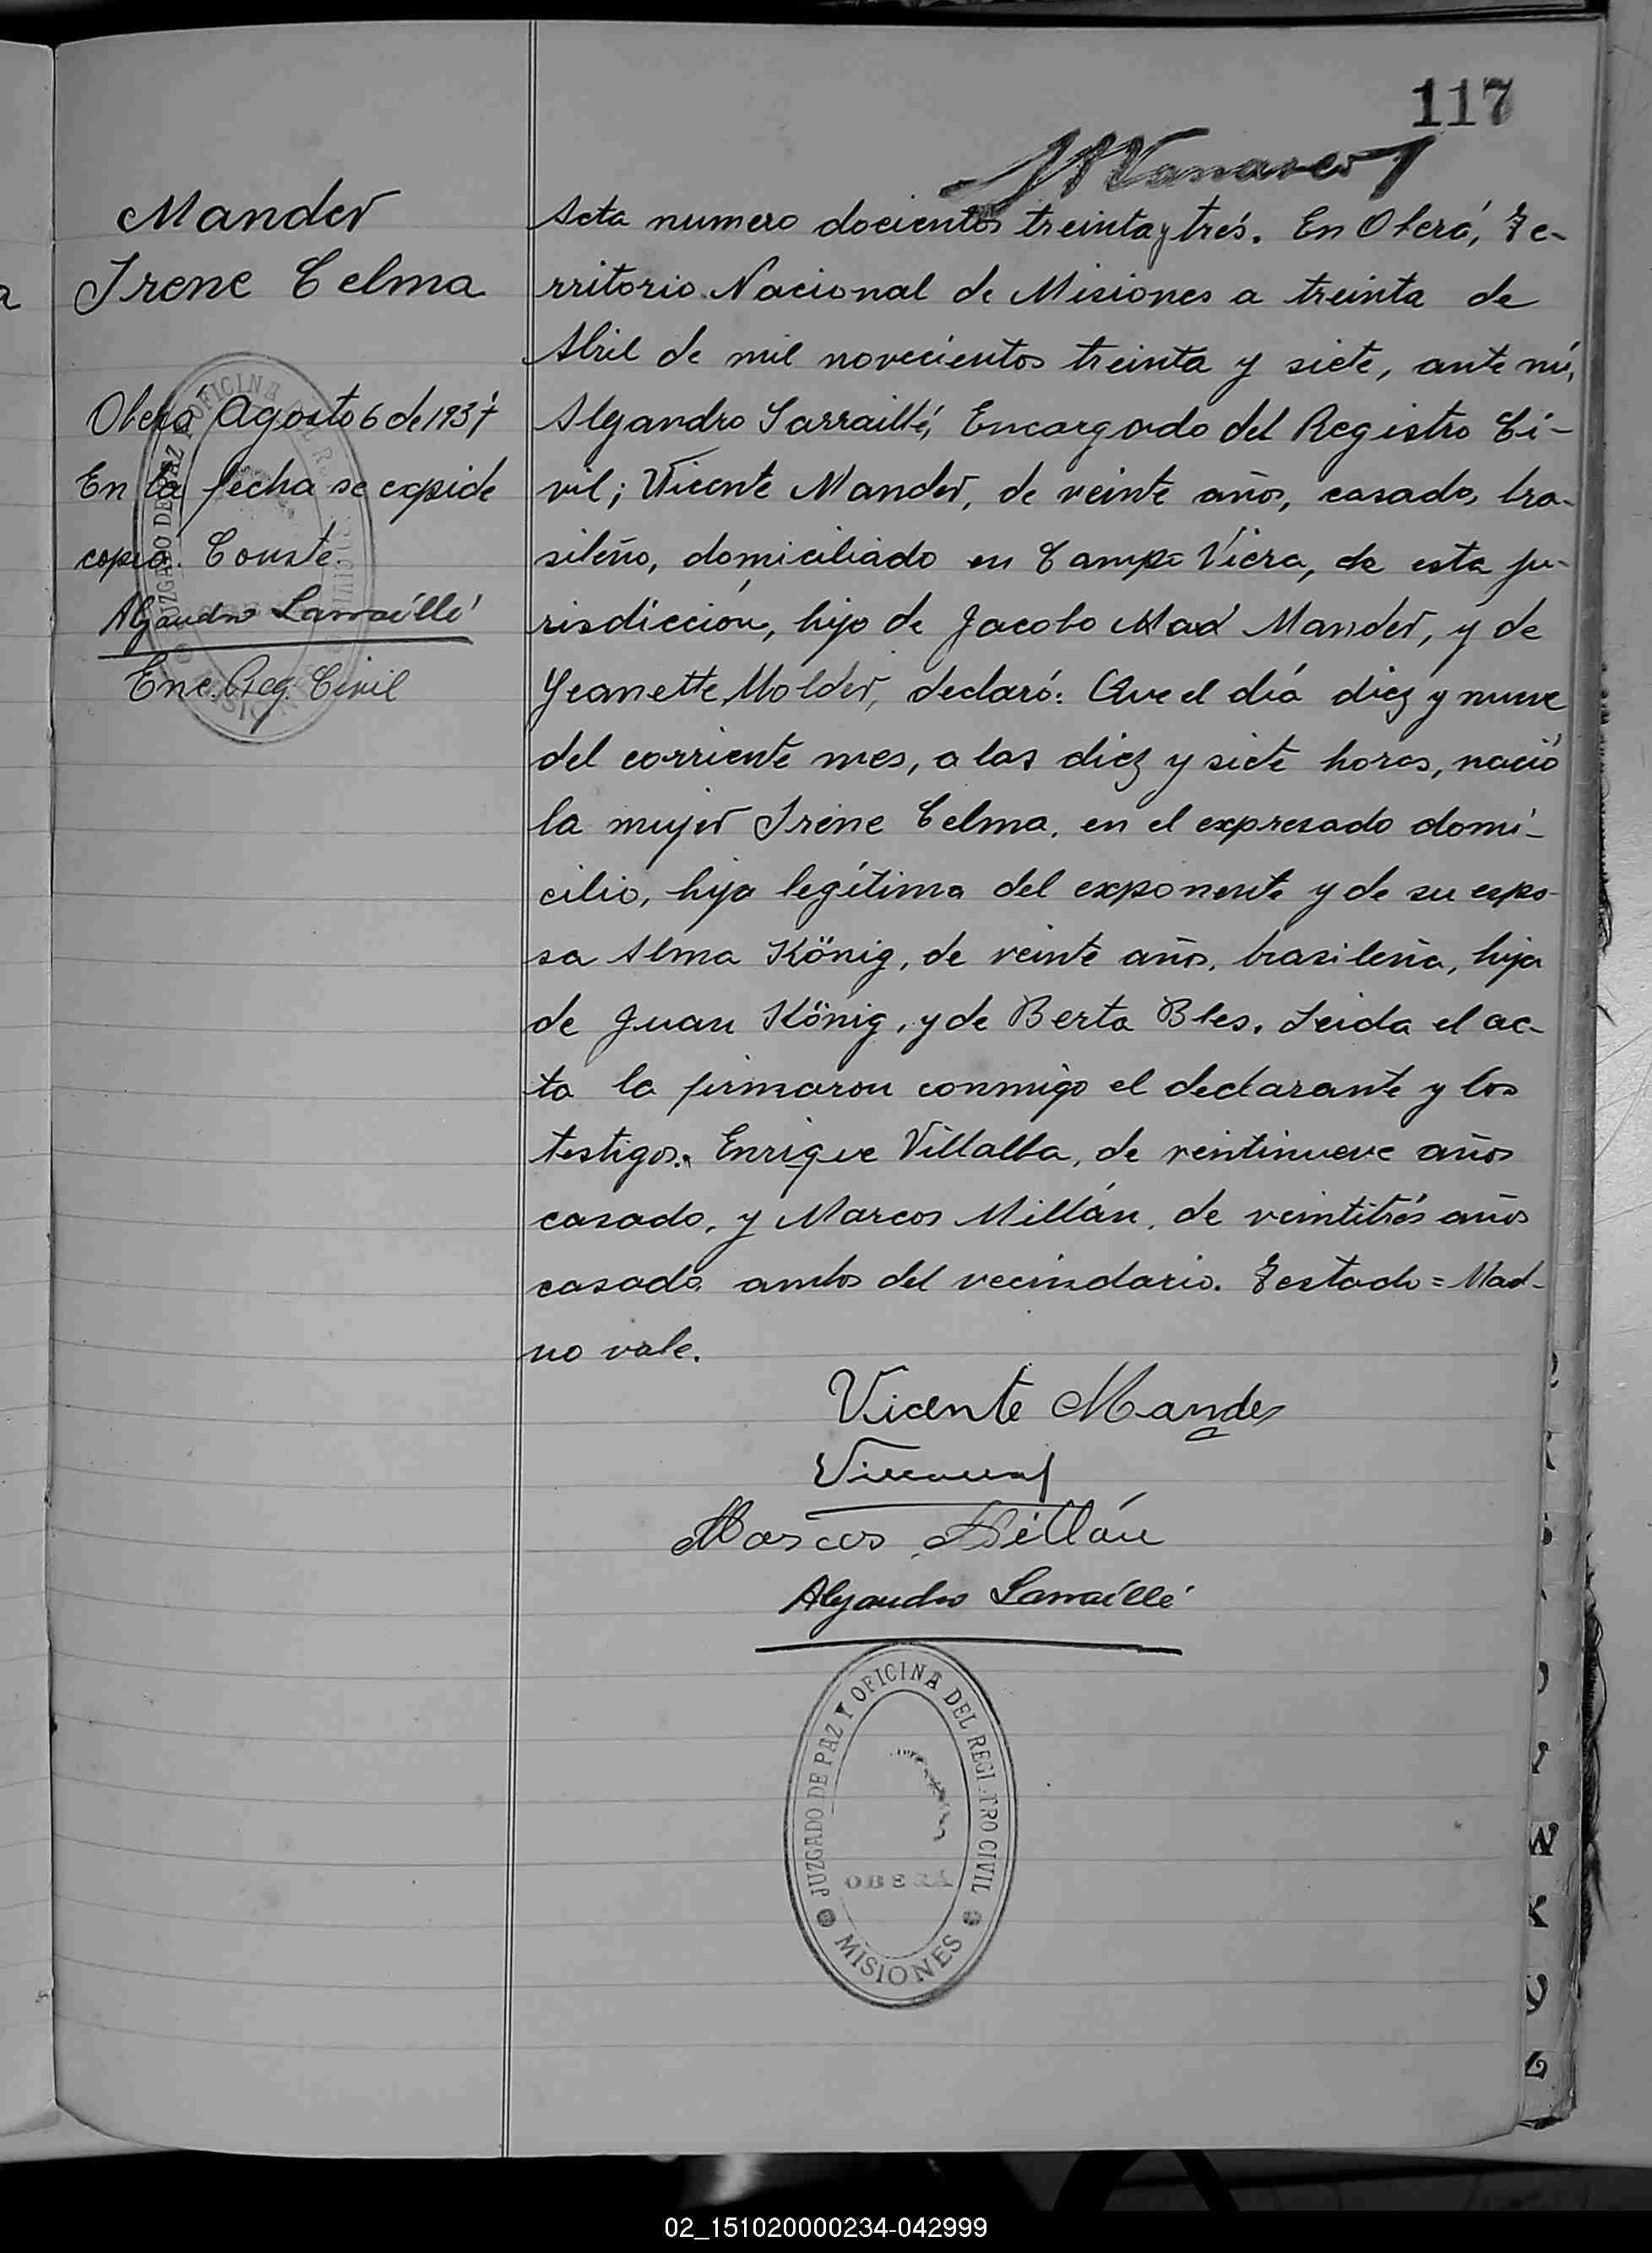 117
Mander
Irene Celma
Oberá Agosto 6 de 1937
En la fecha se expide
copia. Conste.
Alejandro Sarraillé
Enc. Reg. Civil
Acta numero docientos treinta y trés. En Oberá, Te-
rritorio Nacional de Misiones a treinta de
Abril de mil novecientos treinta y siete, ante mí,
Alejandro Sarraillé, Encargado del Registro Ci-
vil; Vicente Mander, de veinte años, casado, bra-
sileño, domiciliado en Campo Viera, de esta ju-
risdicción, hijo de Jacobo Mad Mander, y de
Yeanette Molder, declaró: Que el día diez y nueve
del corriente mes, a las diez y siete horas, nació
la mujer Irene Celma, en el expresado domi-
cilio, hija legítima del exponente y de su espo-
sa Alma König, de veinte años, brasileña, hija
de Juan König, y de Berta Bles. Leida el ac-
ta la firmaron conmigo el declarante y los
testigos. Enrique Villalba, de veintinueve años
casado, y Marcos Millán, de veintitrés años
casado, ambos del vecindario. Testado = Mad-
no vale.
Vicente Mander
Marcos Millán
Alejandro Sarraillé
JUZGADO DE PAZ Y OFICINA DEL REGISTRO CIVIL
OBERÁ
MISIONES
02_151020000234-042999